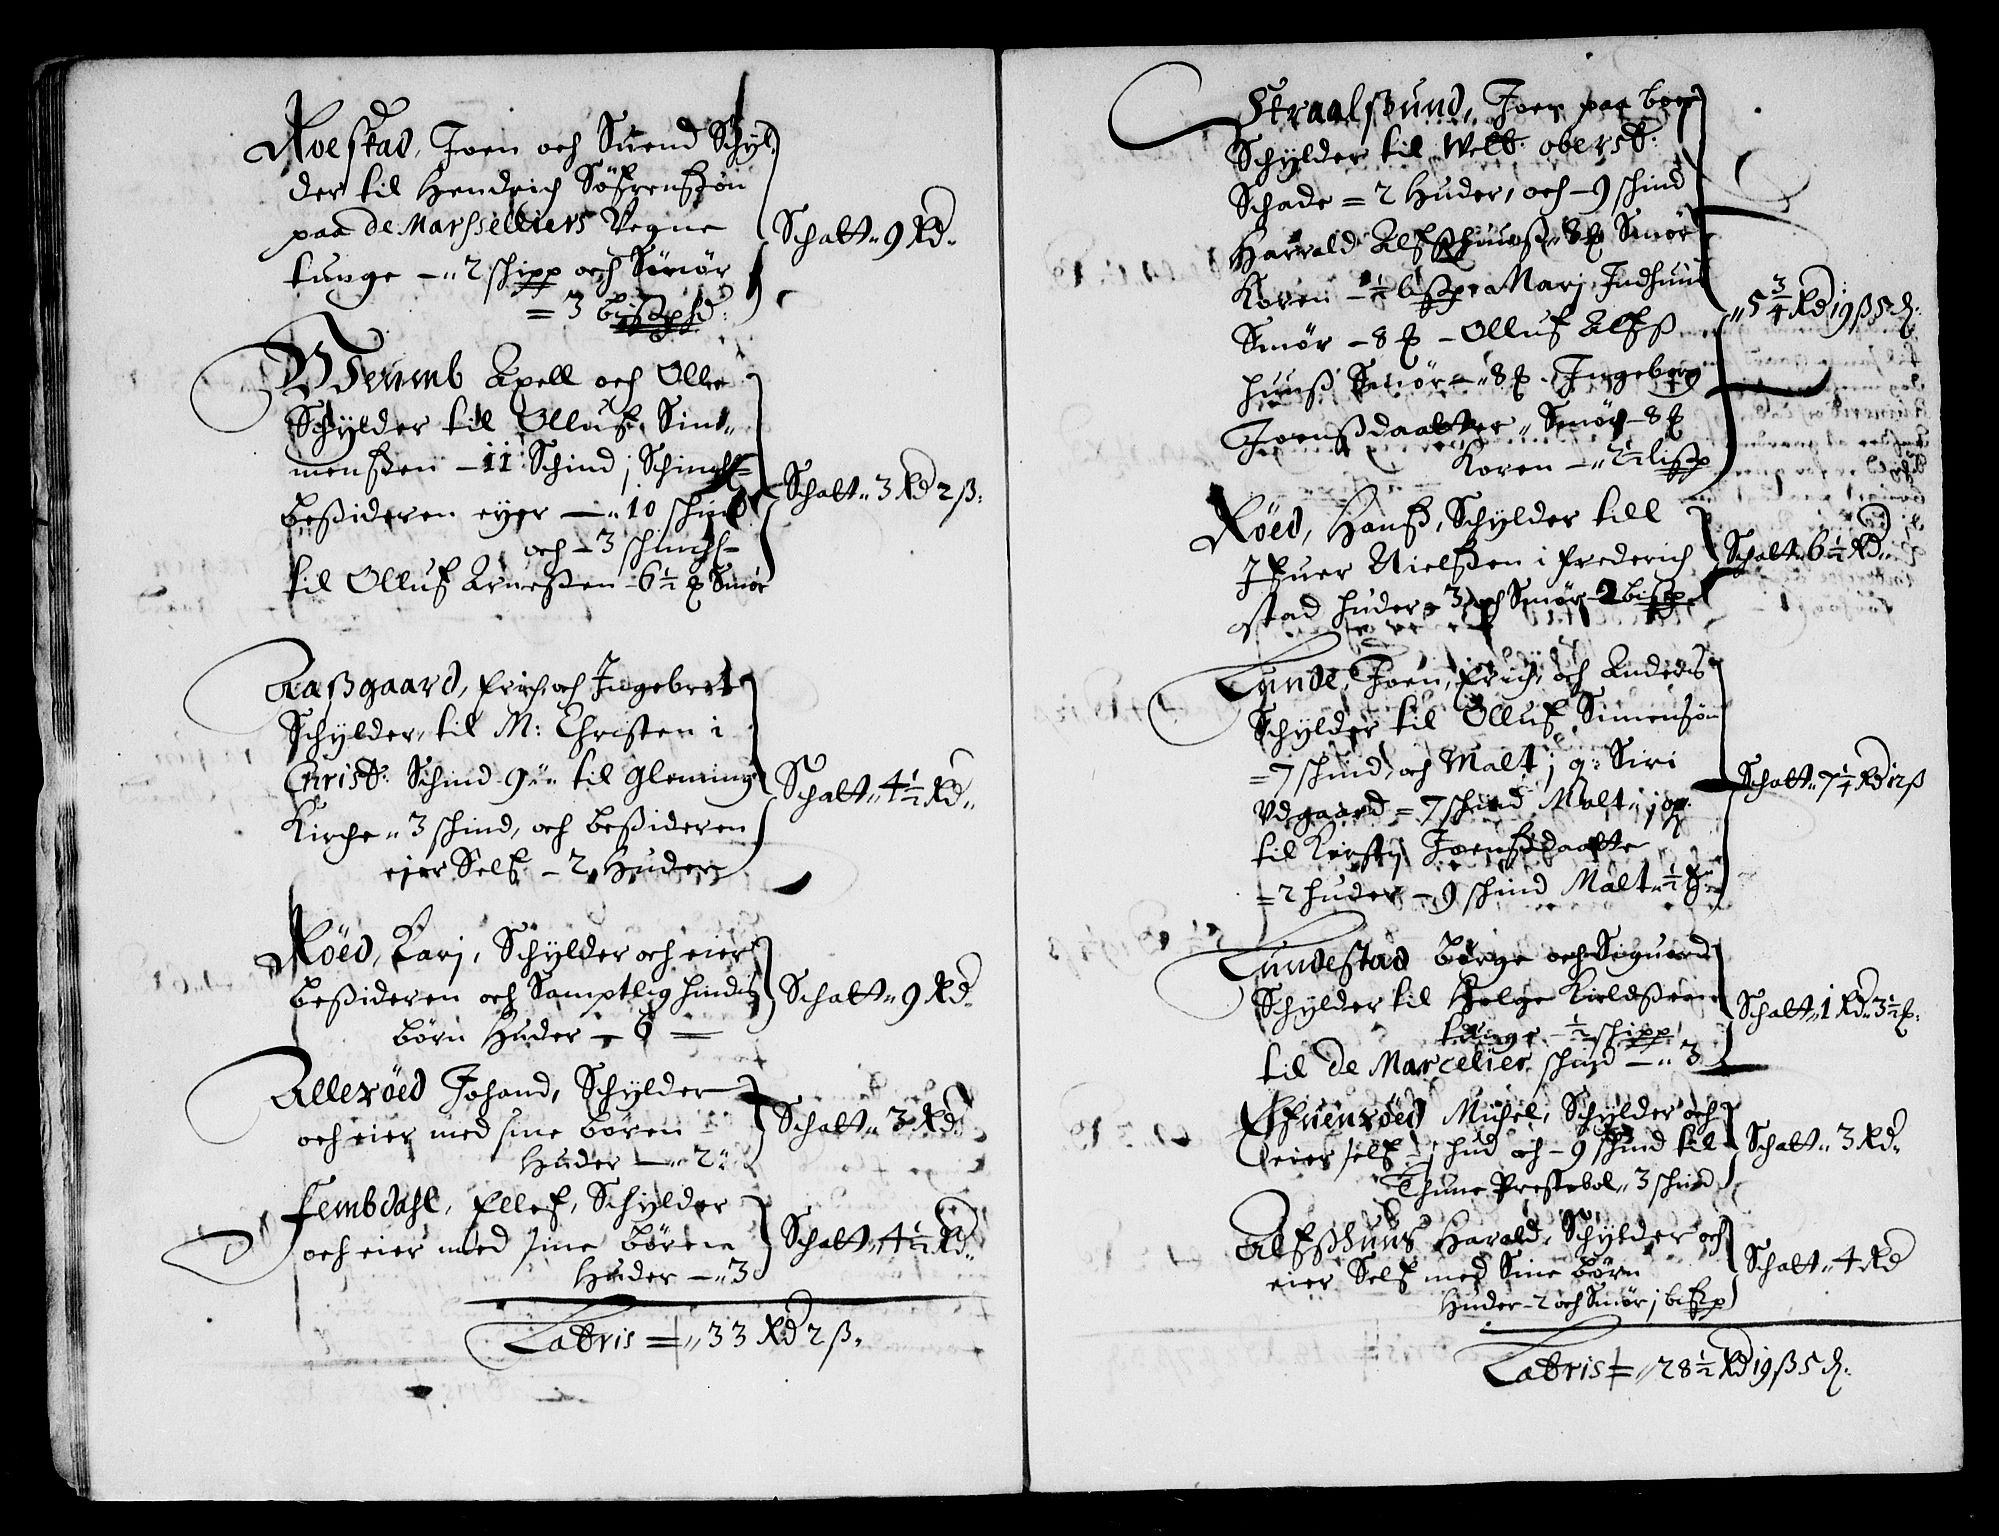 Roestad, Joen och Suend Schyl,
der til Hendrich Söfrenßön
paa de Marßelliers Vegne
tunge —„ 2 schipp och Smör
= 3 bißpd:
Schatt„ 9 Rd.
Axell och Olle
Schylder til Olluf Sim„
menßen – 11 Schind j Schindf=
beßideren eyer —„ 10 schind
och – 3 schindf–
til Olluf Arneßen – 6½ ℔ Smör
Schatt„ 3 Rd 2 ß:
Aaßgaard, Erich och Ingebret
Schylder, til M: Christen i
Christ: Schind 9„ til Glemmig
Kirche„ 3 schind, och beßideren
eier Self – 2 Huder
Schatt„ 4½ Rd„
Röed, Karj, Schylder och eier
beßideren och Samptlig hindis
börn Huder – 6 =
Schatt„ 9 Rd.
Alleröed Johand, Schylder
och eier med sine boren
Huder —„ 2„
Schatt„ 3 Rd
Fembdahl, Ellef, Schylder
och eier med sine börenn
Huder —„ 3
Schatt„ 4½ Rd„
Latris = „ 33 Rd 2 ß.
Straalsßund, Joen paa boer
Schylder til Welb: oberst:
Schade = 2 Huder, och – 9 schind
Harrald Alfßhuuß„ 8 ℔ Smör
Koren – ½ bißp, Marj Indhuus
Smör – 8 ℔ – Olluf Alfß
huuß Smör —„ 8 ℔ – Ingeborg
Joenßdaatter„ Smör – 8 ℔
Koren —„ 2½ lißp
„ 5¾ Rd 19 ß 5 d:
Röed, Hanß, Schylder till
Ifuer Nielßen i Frederich
stad huder – 3 och Smör – 2 bißp
Schatt„ 6½ Rd„
Lunde, Joen, Erich, och Anders
Schylder til Olluf Simensön
= 7 schind, och Malt j q: Siri
Vdgaard = 7 schind Malt„ j qr:
til Kirstj Joenßdaatte
= 2 huder – 9 schind Malt„ ½
Schatt„ 7¼ Rd 12 ß
Lundestad Börge och Siguord
Schylder til Helge Kieldßenn
tunge – ½ schipp
til de Marcelier schind —„ 3
Schatt„ 1 Rd„ 3½
Michel, Schylder och
eier self – j hud och – 9 schind til
Thune Prestebol„ 3 schind
Schatt„ 3 Rd„
Alfßhuus Harald, Schylder och
eier Self med Sine börn
Huder – 2 och Smör j bißp
Schatt„ 4 Rd
Latris = „ 28½ Rd 19 ß 5 d: